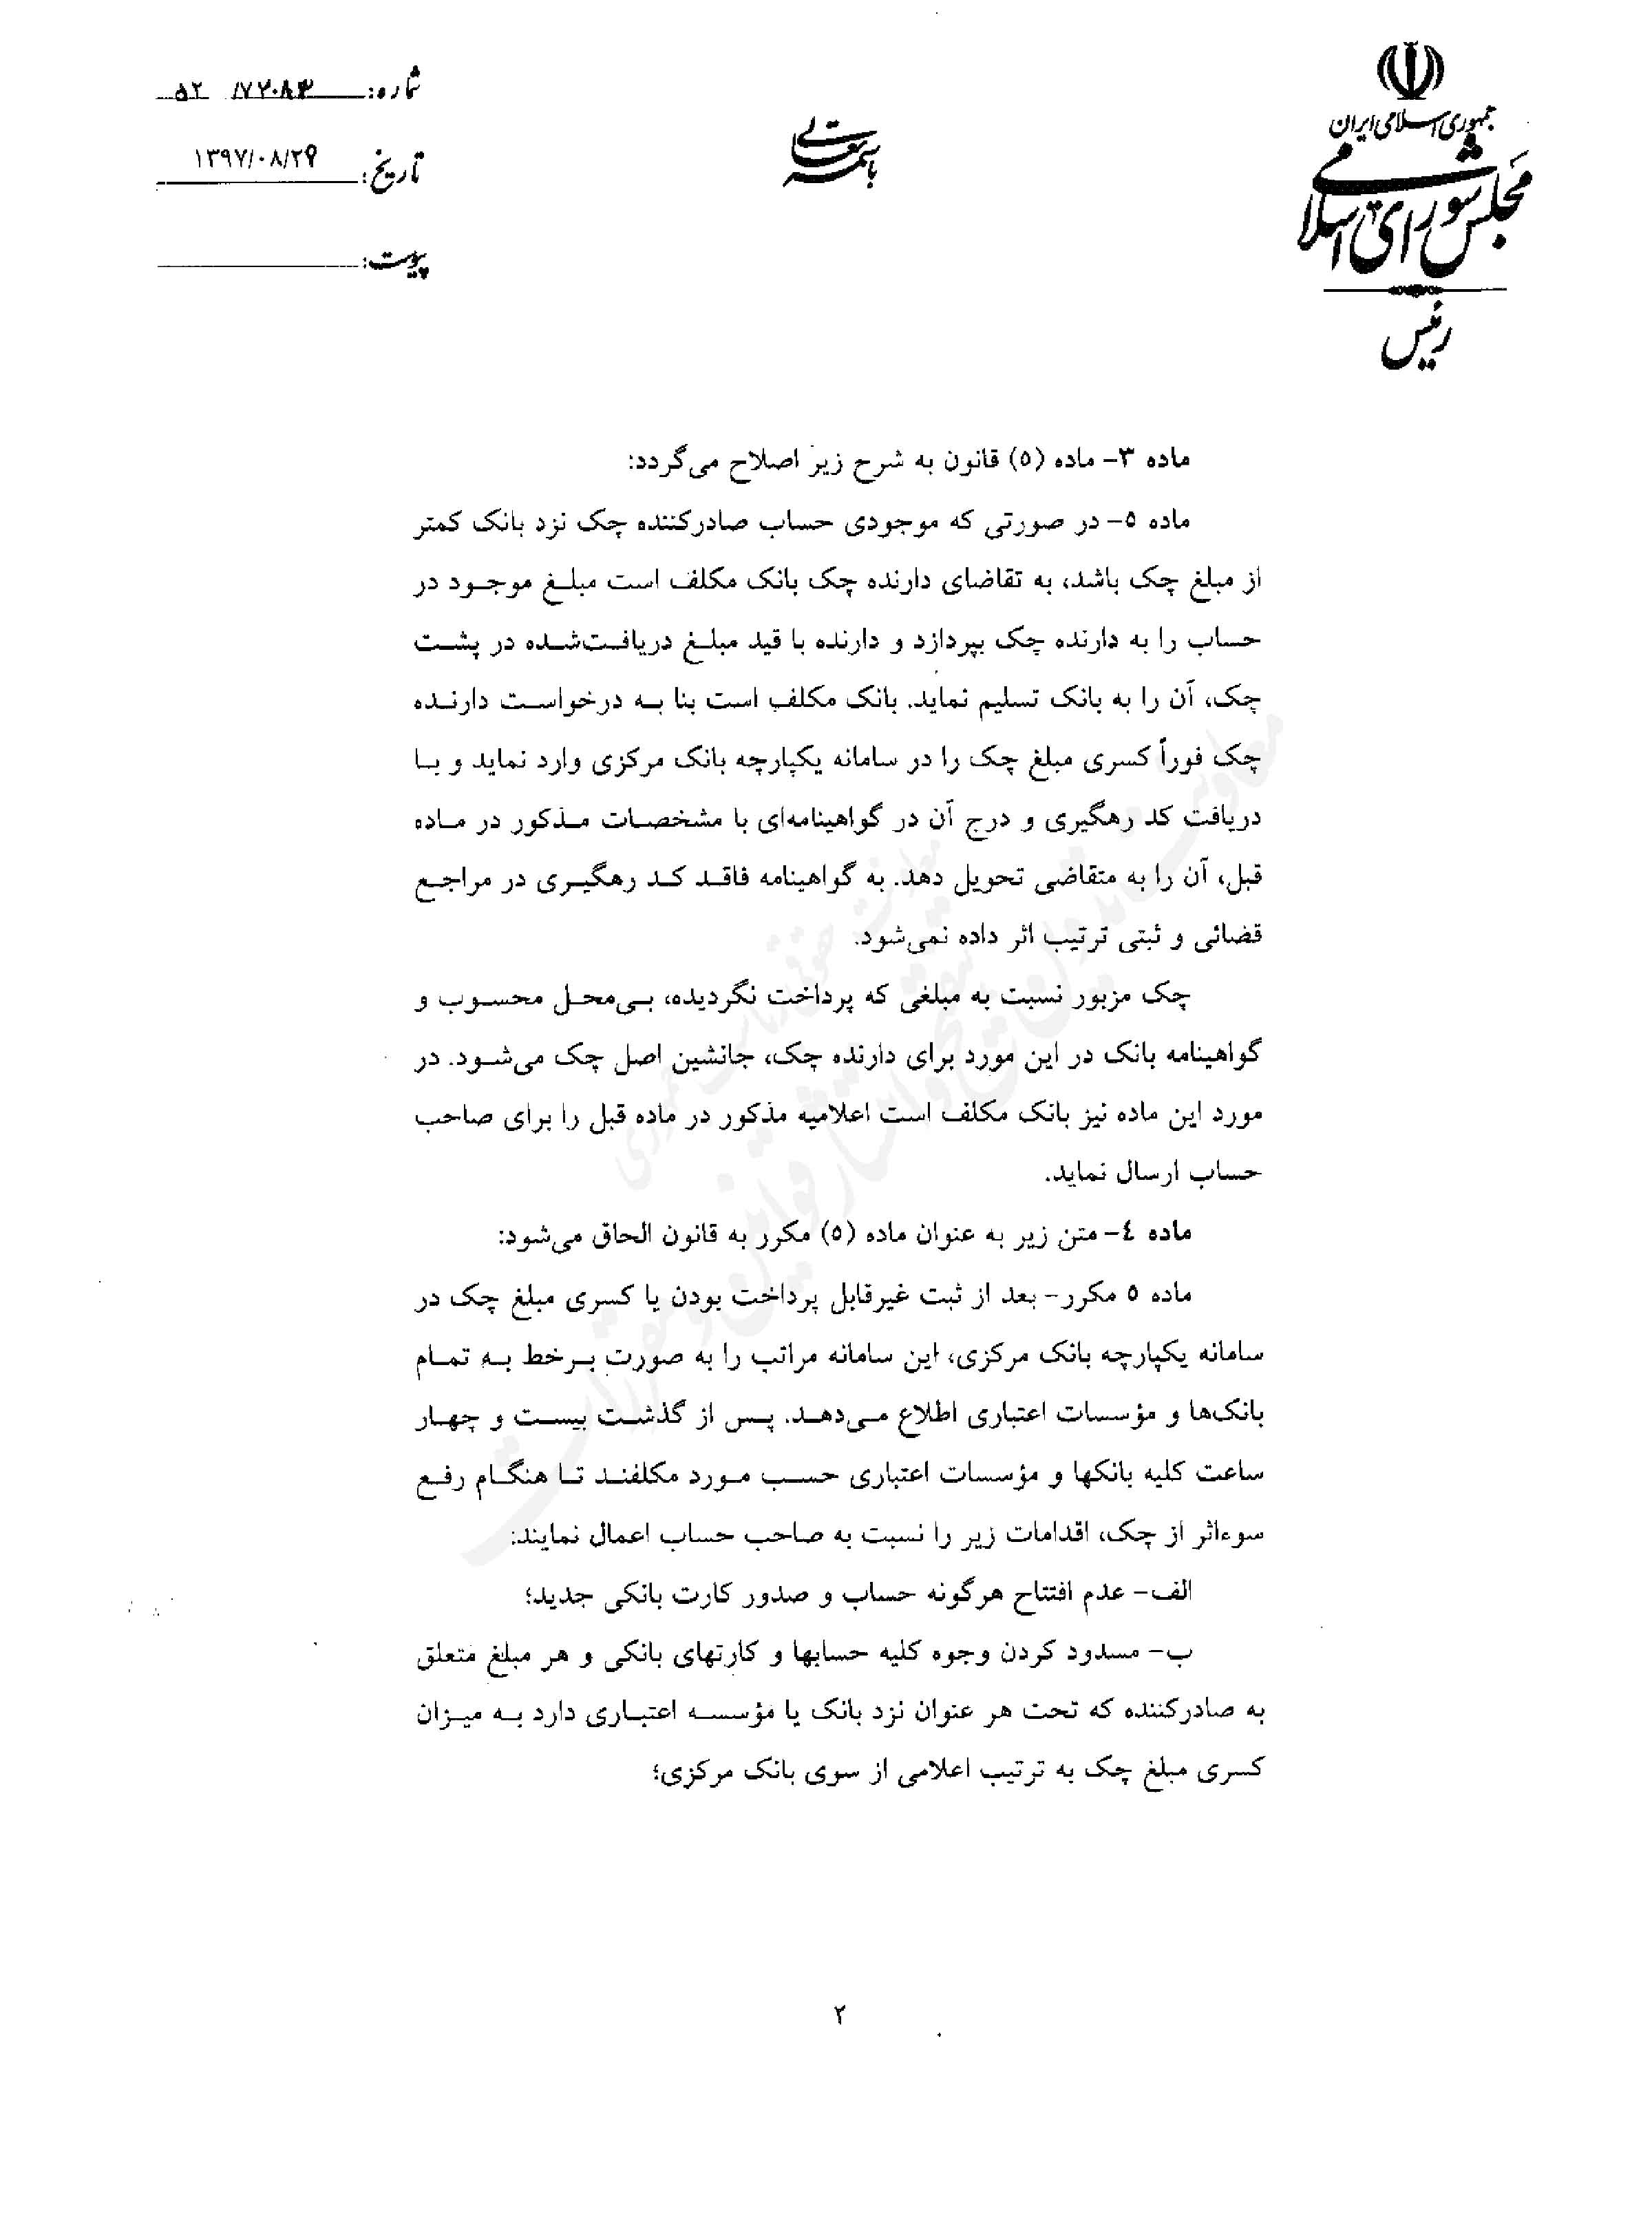 جمهوری اسلامی ایران
مجلس شورای اسلامی
رئیس
باسمه تعالی
شماره: ۵۲ /۷۲۰۸۳
تاریخ: ۱۳۹۷/۰۸/۲۹
پیوست:
ماده ۳- ماده (۵) قانون به شرح زیر اصلاح می‌گردد:
ماده ۵- در صورتی که موجودی حساب صادرکننده چک نزد بانک کمتر
از مبلغ چک باشد، به تقاضای دارنده چک بانک مکلف است مبلغ موجود در
حساب را به دارنده چک بپردازد و دارنده با قید مبلغ دریافت‌شده در پشت
چک، آن را به بانک تسلیم نماید. بانک مکلف است بنا به درخواست دارنده
چک فوراً کسری مبلغ چک را در سامانه یکپارچه بانک مرکزی وارد نماید و با
دریافت کد رهگیری و درج آن در گواهینامه‌ای با مشخصات مذکور در ماده
قبل، آن را به متقاضی تحویل دهد. به گواهینامه فاقد کد رهگیری در مراجع
قضائی و ثبتی ترتیب اثر داده نمی‌شود.
چک مزبور نسبت به مبلغی که پرداخت نگردیده، بی‌محل محسوب و
گواهینامه بانک در این مورد برای دارنده چک، جانشین اصل چک می‌شود. در
مورد این ماده نیز بانک مکلف است اعلامیه مذکور در ماده قبل را برای صاحب
حساب ارسال نماید.
ماده ٤- متن زیر به عنوان ماده (۵) مکرر به قانون الحاق می‌شود:
ماده ۵ مکرر- بعد از ثبت غیرقابل پرداخت بودن یا کسری مبلغ چک در
سامانه یکپارچه بانک مرکزی، این سامانه مراتب را به صورت برخط به تمام
بانک‌ها و مؤسسات اعتباری اطلاع می‌دهد. پس از گذشت بیست و چهار
ساعت کلیه بانکها و مؤسسات اعتباری حسب مورد مکلفند تا هنگام رفع
سوءاثر از چک، اقدامات زیر را نسبت به صاحب حساب اعمال نمایند:
الف- عدم افتتاح هرگونه حساب و صدور کارت بانکی جدید؛
ب- مسدود کردن وجوه کلیه حسابها و کارتهای بانکی و هر مبلغ متعلق
به صادرکننده که تحت هر عنوان نزد بانک یا مؤسسه اعتباری دارد به میزان
کسری مبلغ چک به ترتیب اعلامی از سوی بانک مرکزی؛
۲
معاونت تدوین، تنقیح و انتشار قوانین و مقررات
معاونت حقوقی ریاست جمهوری